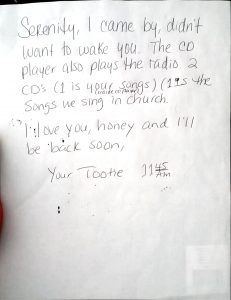 Serenity, I came by, didn't
want to wake you. The CD
player also plays the radio 2
CD's (1 is your songs) (1 is the
songs we sing in church.
I love you, honey and I'll
be back soon,
Your Tootie 11 45 AM